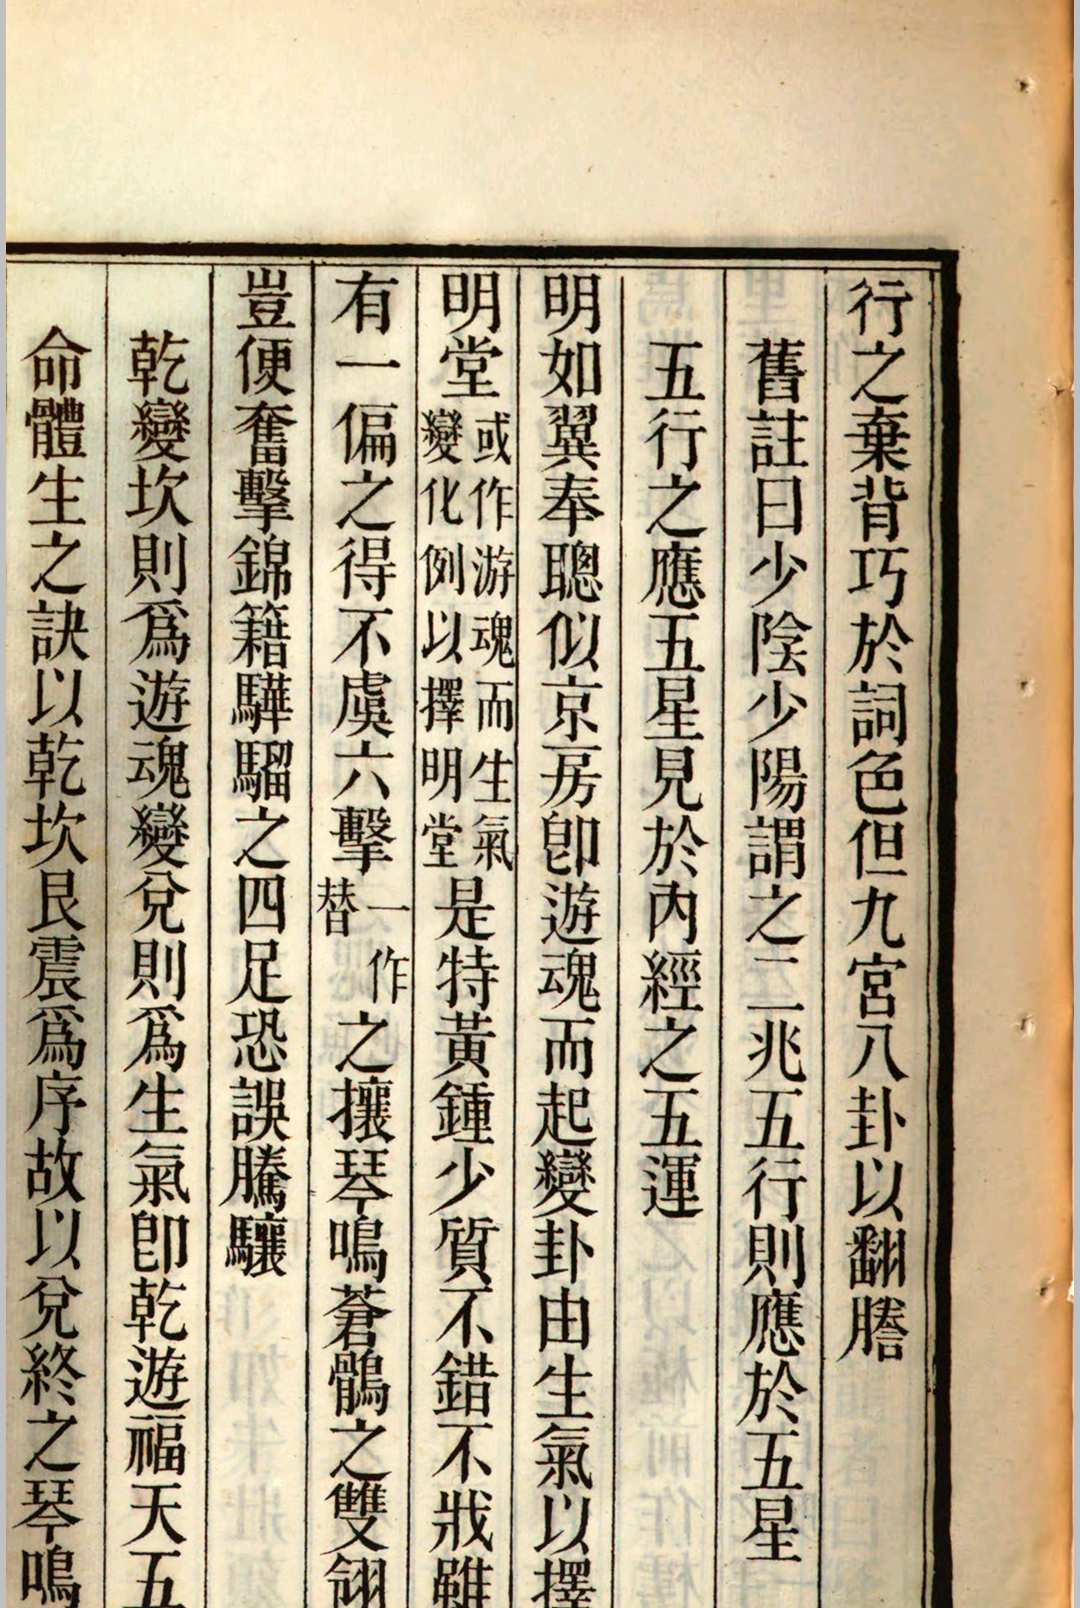 行之棄背巧於詞色但九宮八卦以翻謄
舊註曰少陰少陽謂之二兆五行則應於五星
五行之應五星見於內經之五運
明如翼奉聰似京房卽遊魂而起變卦由生氣以擇
明堂或作游魂而生氣變化例以擇明堂是特黃鍾少質不錯不戕雖
有一偏之得不虞六擊一作替之攘琴鳴蒼鶻之雙翎
豈便奮擊錦籍驊騮之四足恐誤騰驤
乾變坎則爲遊魂變兌則爲生氣卽乾遊福天五
命體生之訣以乾坎艮震爲序故以兌終之琴鳴